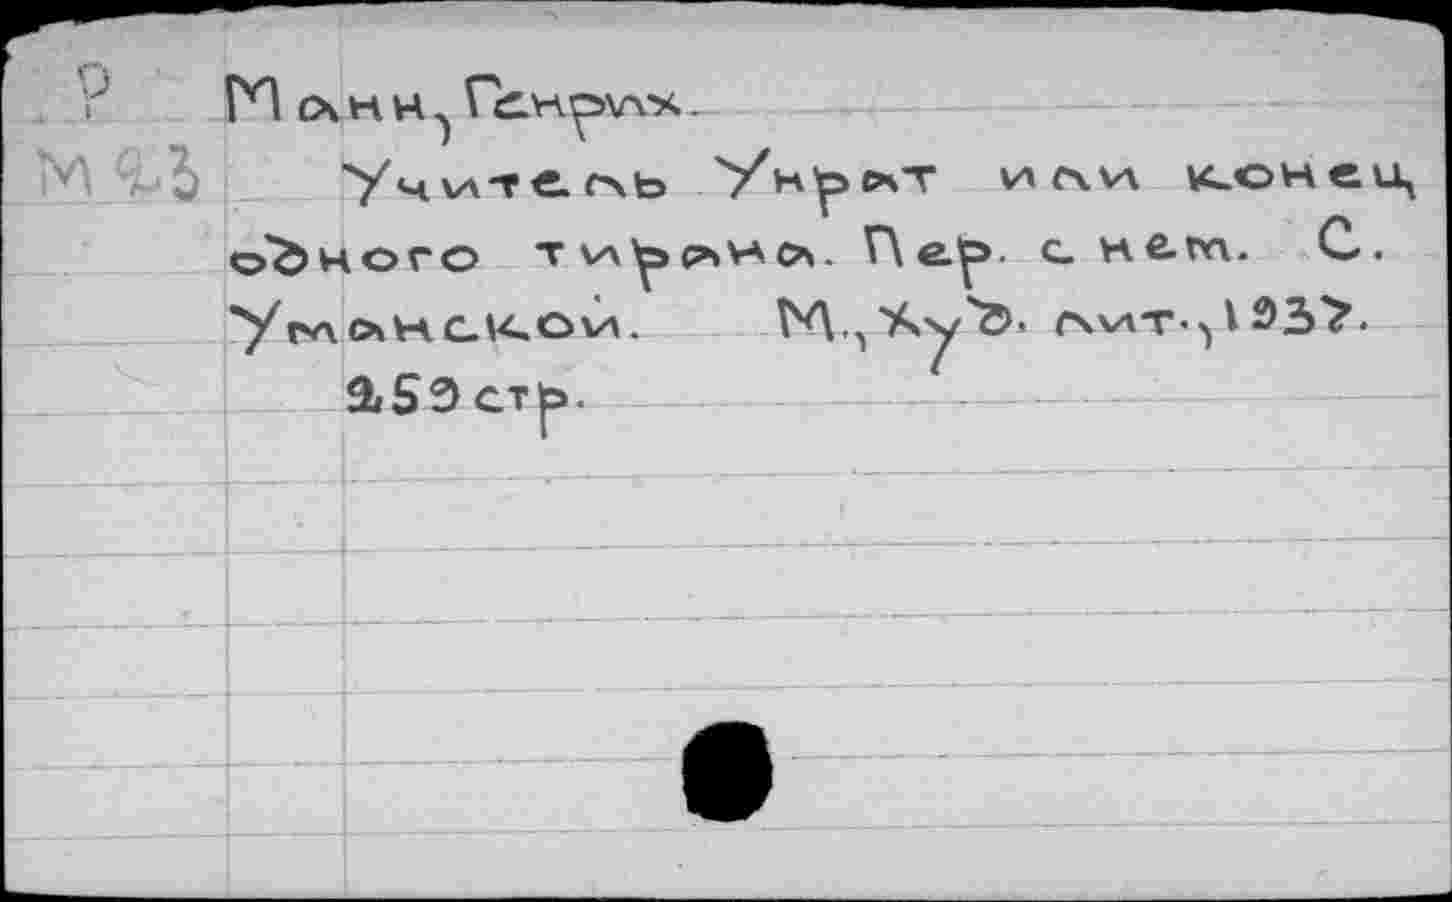 Р Манн, Генрих.
М23 Учитель Унрат или конец
одного тирана. Пер. с нем. С.
Уманской. М., Худ. лит., 1937.
259 стр.